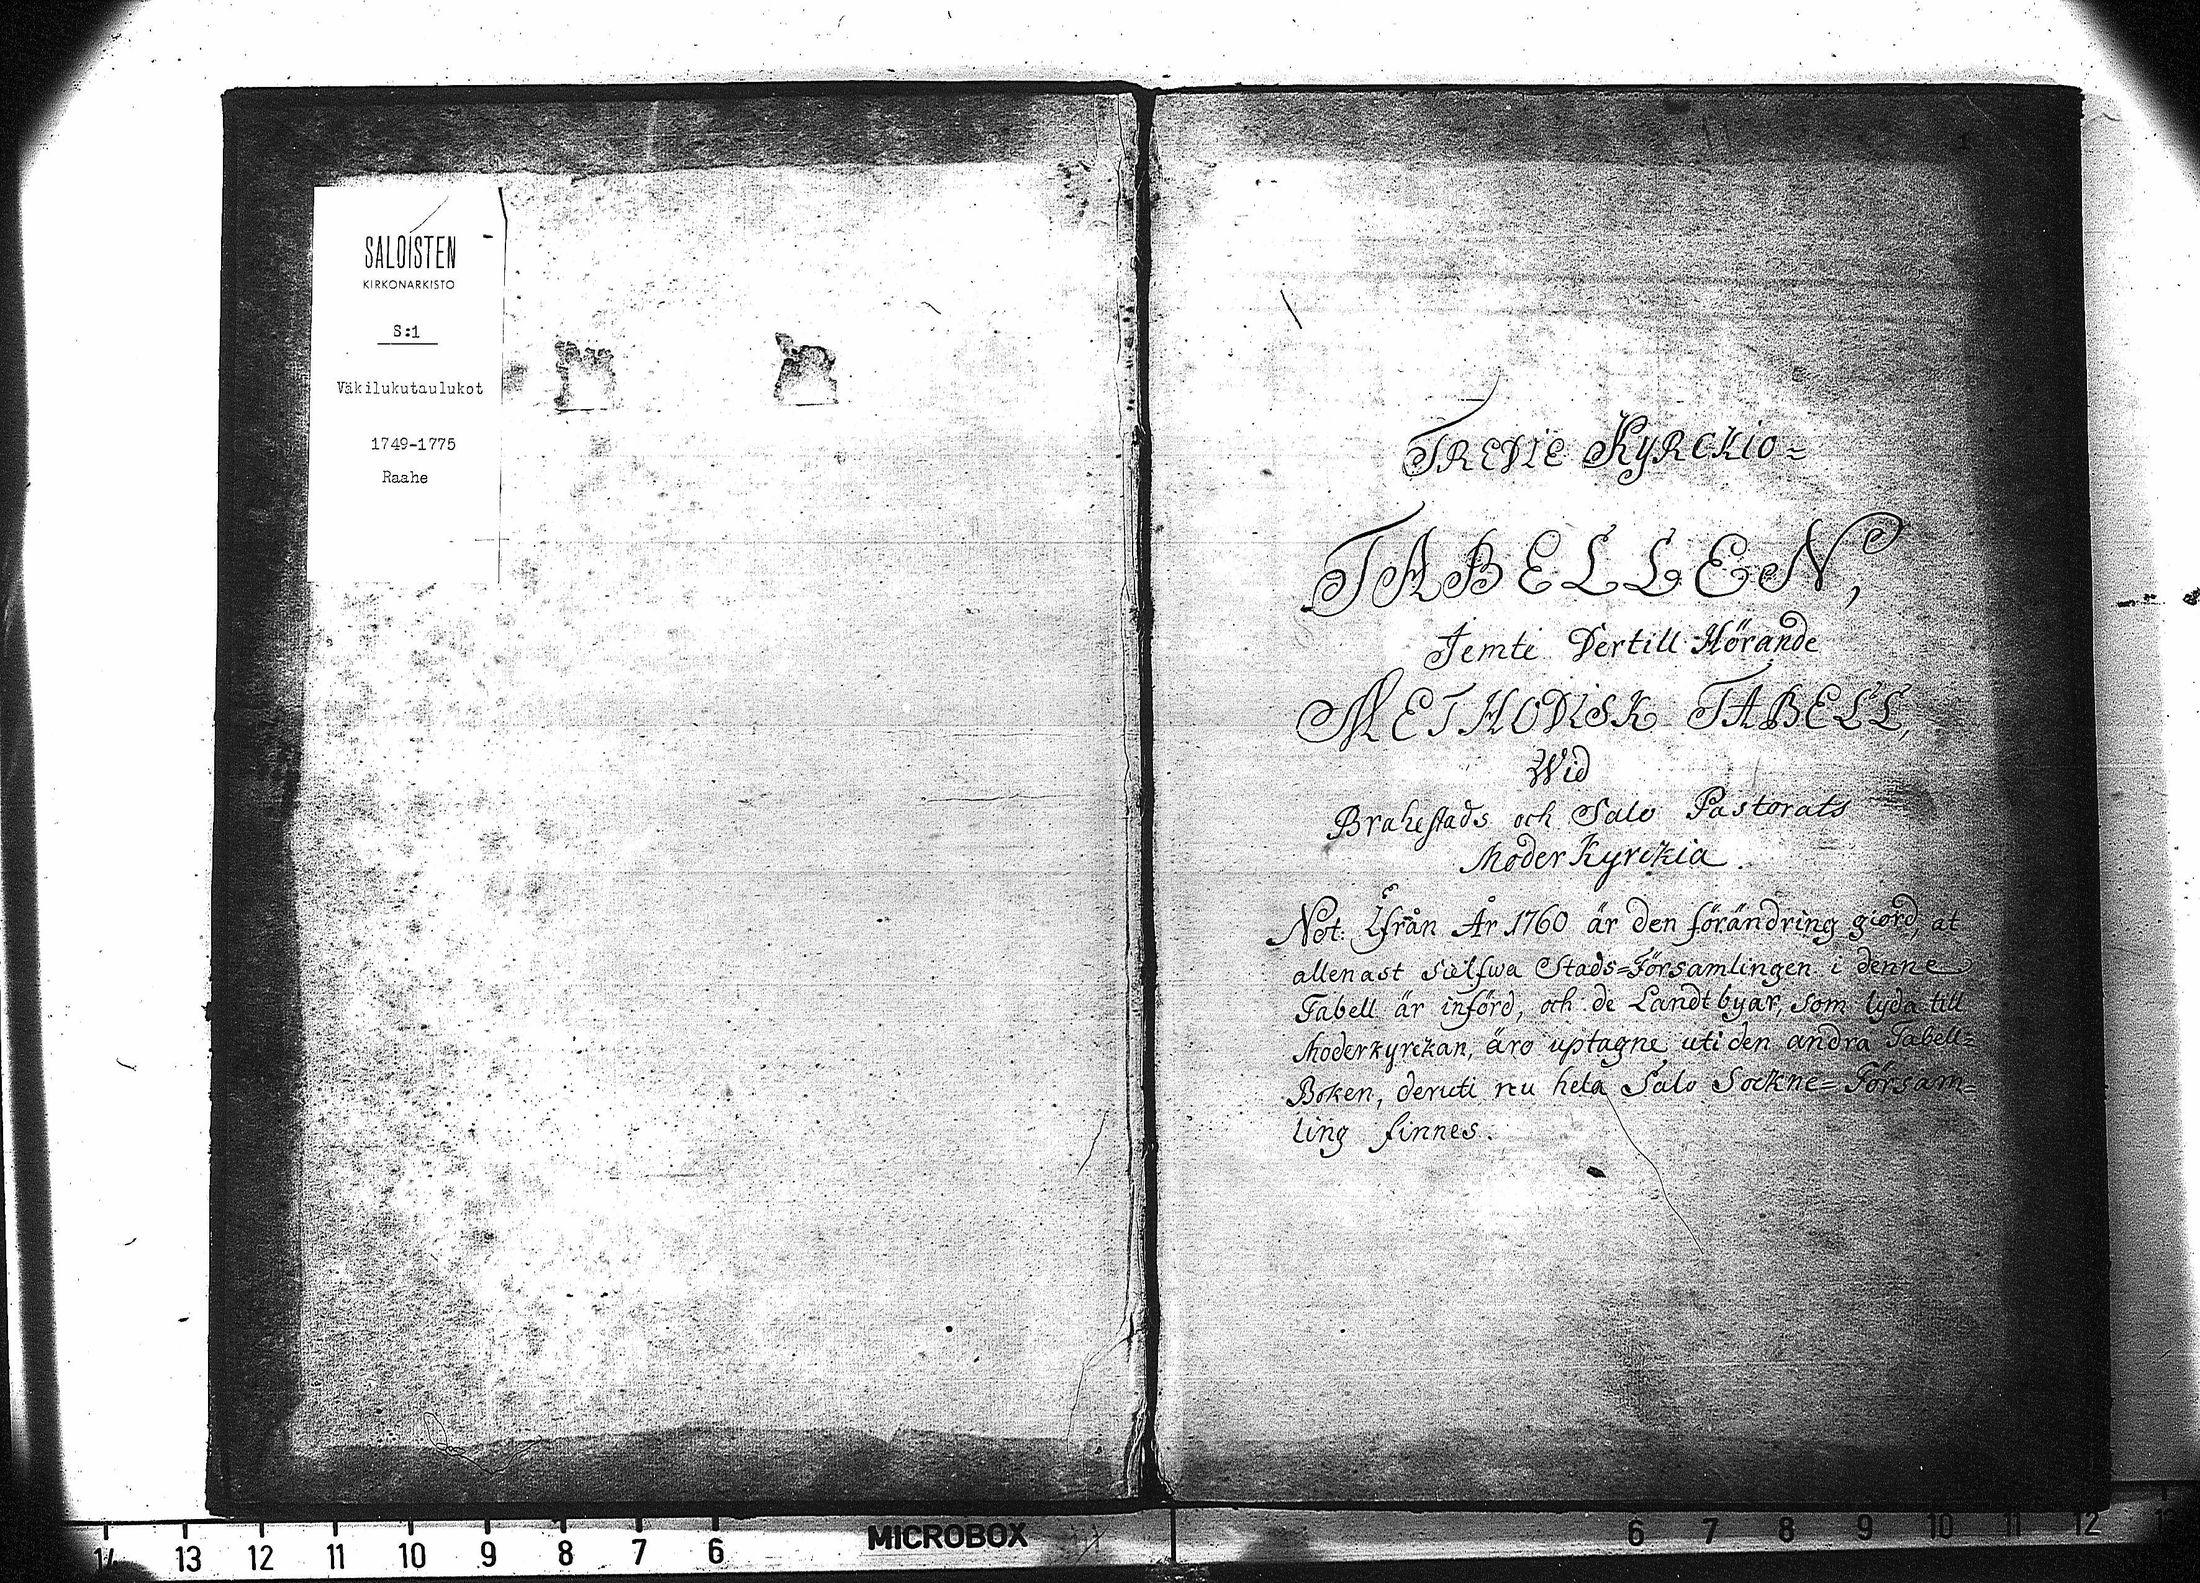 SALOISTEN
KIRKONARKISTO
S:1
Väkilukutaulukot
1749-1775
Raahe
1
TREDIE KYRCKIO=
TABELLEN,
Jemte Dertill Hörande
METHODISK TABELL,
Wid
Brahestads och Salo Pastorats
Moder Kyrckia.
Not. Ifrån År 1760 är den förändring giord, at
allenast sielfwa Stads=Församlingen i denne
Tabell är införd, och de Landtbyar, som lyda till
Moderkyrckan, äro uptagne uti den andra Tabell=
Boken, deruti nu hela Salo Sockne=Församling=
ling finnes.
MICROBOX
14 13 12 11 10 9 8 7 6
6 7 8 9 10 11 12 13